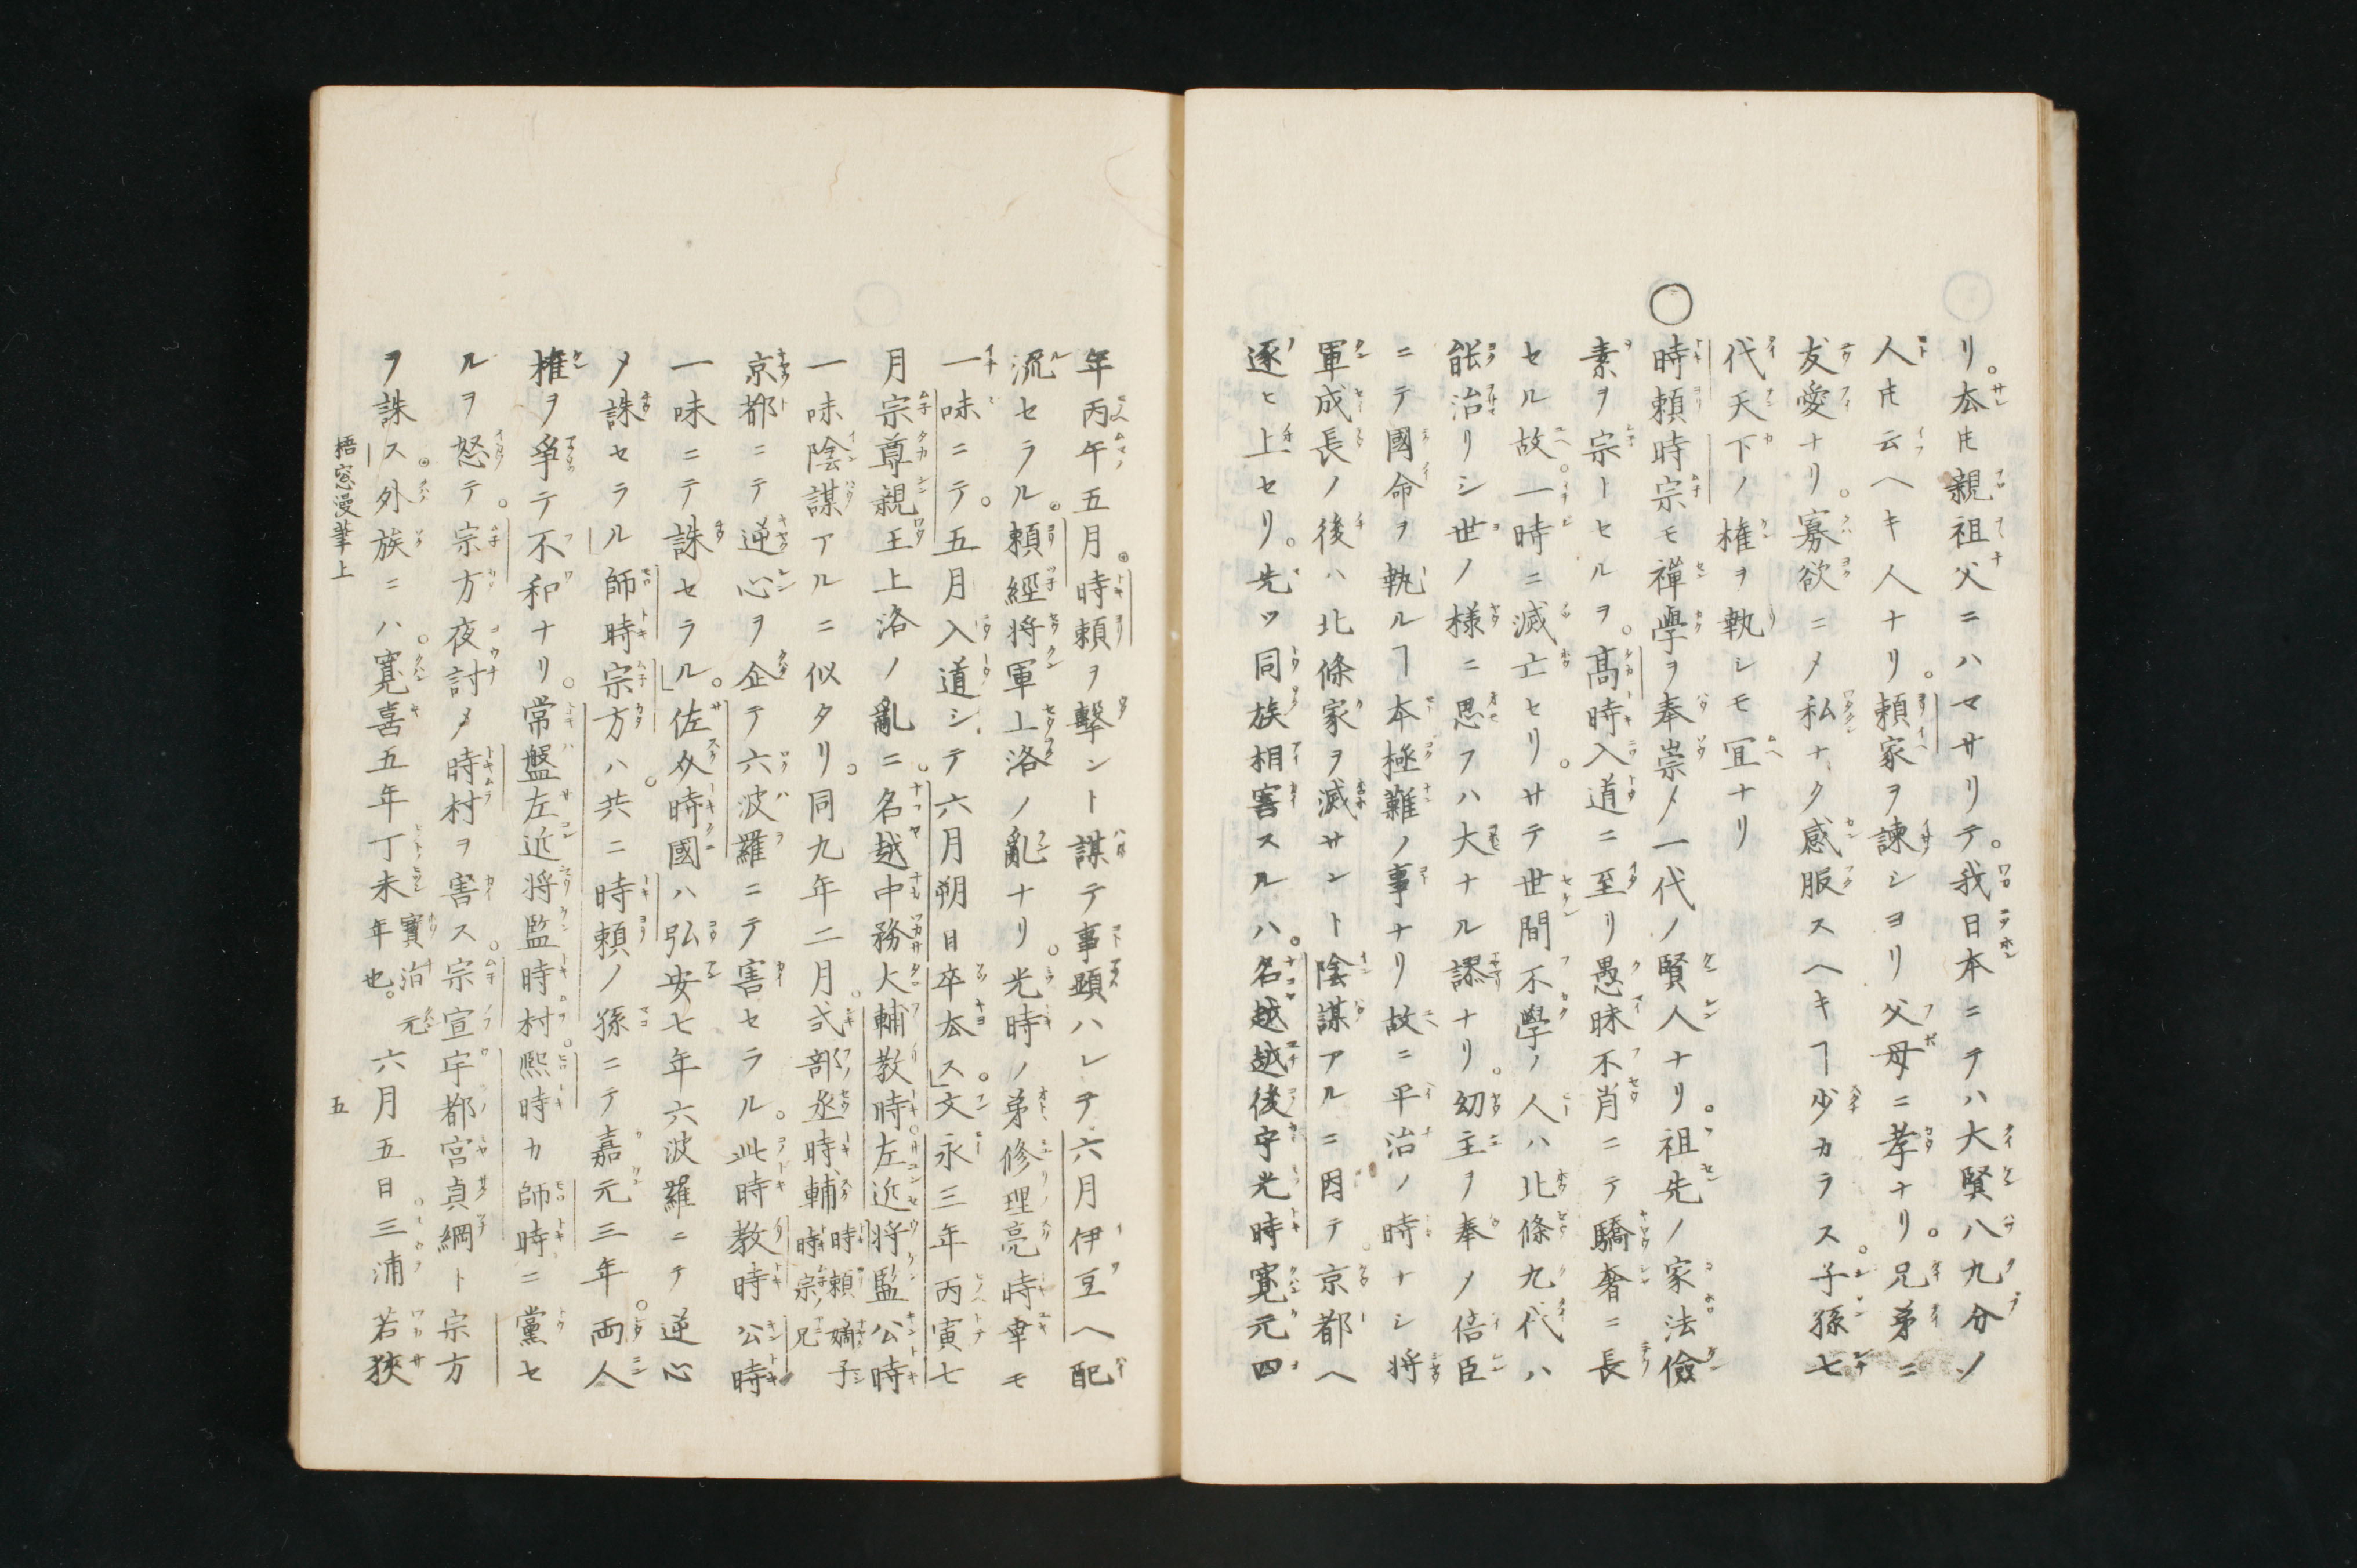 リ。夲𪜈親祖父ニハマサリテ。我日本ニテハ大賢八九分ノ
人𪜈云ヘキ人ナリ。頼家ヲ諫シヨリ父母ニ孝ナリ。兄弟ニ
友愛ナリ。寡欲ニメ私ナク感服スヘキヿ少カラス。子孫七
代天下ノ権ヲ執シモ冝ナリ
○時頼時宗モ禪學ヲ奉崇メ一代ノ賢人ナリ。祖先ノ家法儉
素ヲ宗トセルヲ。髙時入道ニ至リ愚昧不肖ニテ驕奢ニ長
セル故。一時ニ滅亡セリ。サテ世間不學ノ人ハ北條九代ハ
能治リシ世ノ様ニ思フハ大ナル謬ナリ。幼主ヲ奉メ倍臣
ニテ國命ヲ執ルヿ本極難ノ事ナリ故ニ平治ノ時ナシ将
軍成長ノ後ハ北條家ヲ滅サント陰謀アルニ因テ。京都ヘ
逐ヒ上セリ。先ツ同族相害スルハ。名越越後守光時寛元四
年丙午五月。時頼ヲ撃ント謀テ事顕ハレテ。六月伊豆ヘ配
流セラル。頼經将軍上洛ノ亂ナリ。光時ノ弟修理亮時幸モ
一味ニテ。五月入道シテ六月朔日卒去ス。文永三年丙寅七
月宗尊親王上洛ノ亂ニ。名越中務大輔教時左近将監公時
一味陰謀アルニ似タリ。同九年二月。式部丞時輔時頼嫡子時宗ノ兄
京都ニテ逆心ヲ企テ六波羅ニテ害セラル。此時教時公時
一味ニテ誅セラル。佐介時國ハ弘安七年六波羅ニテ逆心
メ誅セラル師時宗方ハ。共ニ時頼ノ孫ニテ嘉元三年。両人
権ヲ爭テ不和ナリ。常盤左近将監時村。熙時カ師時ニ黨セ
ルヲ怒テ。宗方夜討メ時村ヲ害ス。宗宣宇都宮貞綱ト宗方
ヲ誅ス。外族ニハ。寛喜五年丁未年寳治元年也。六月五日。三浦若狹
梧窓漫筆上
五